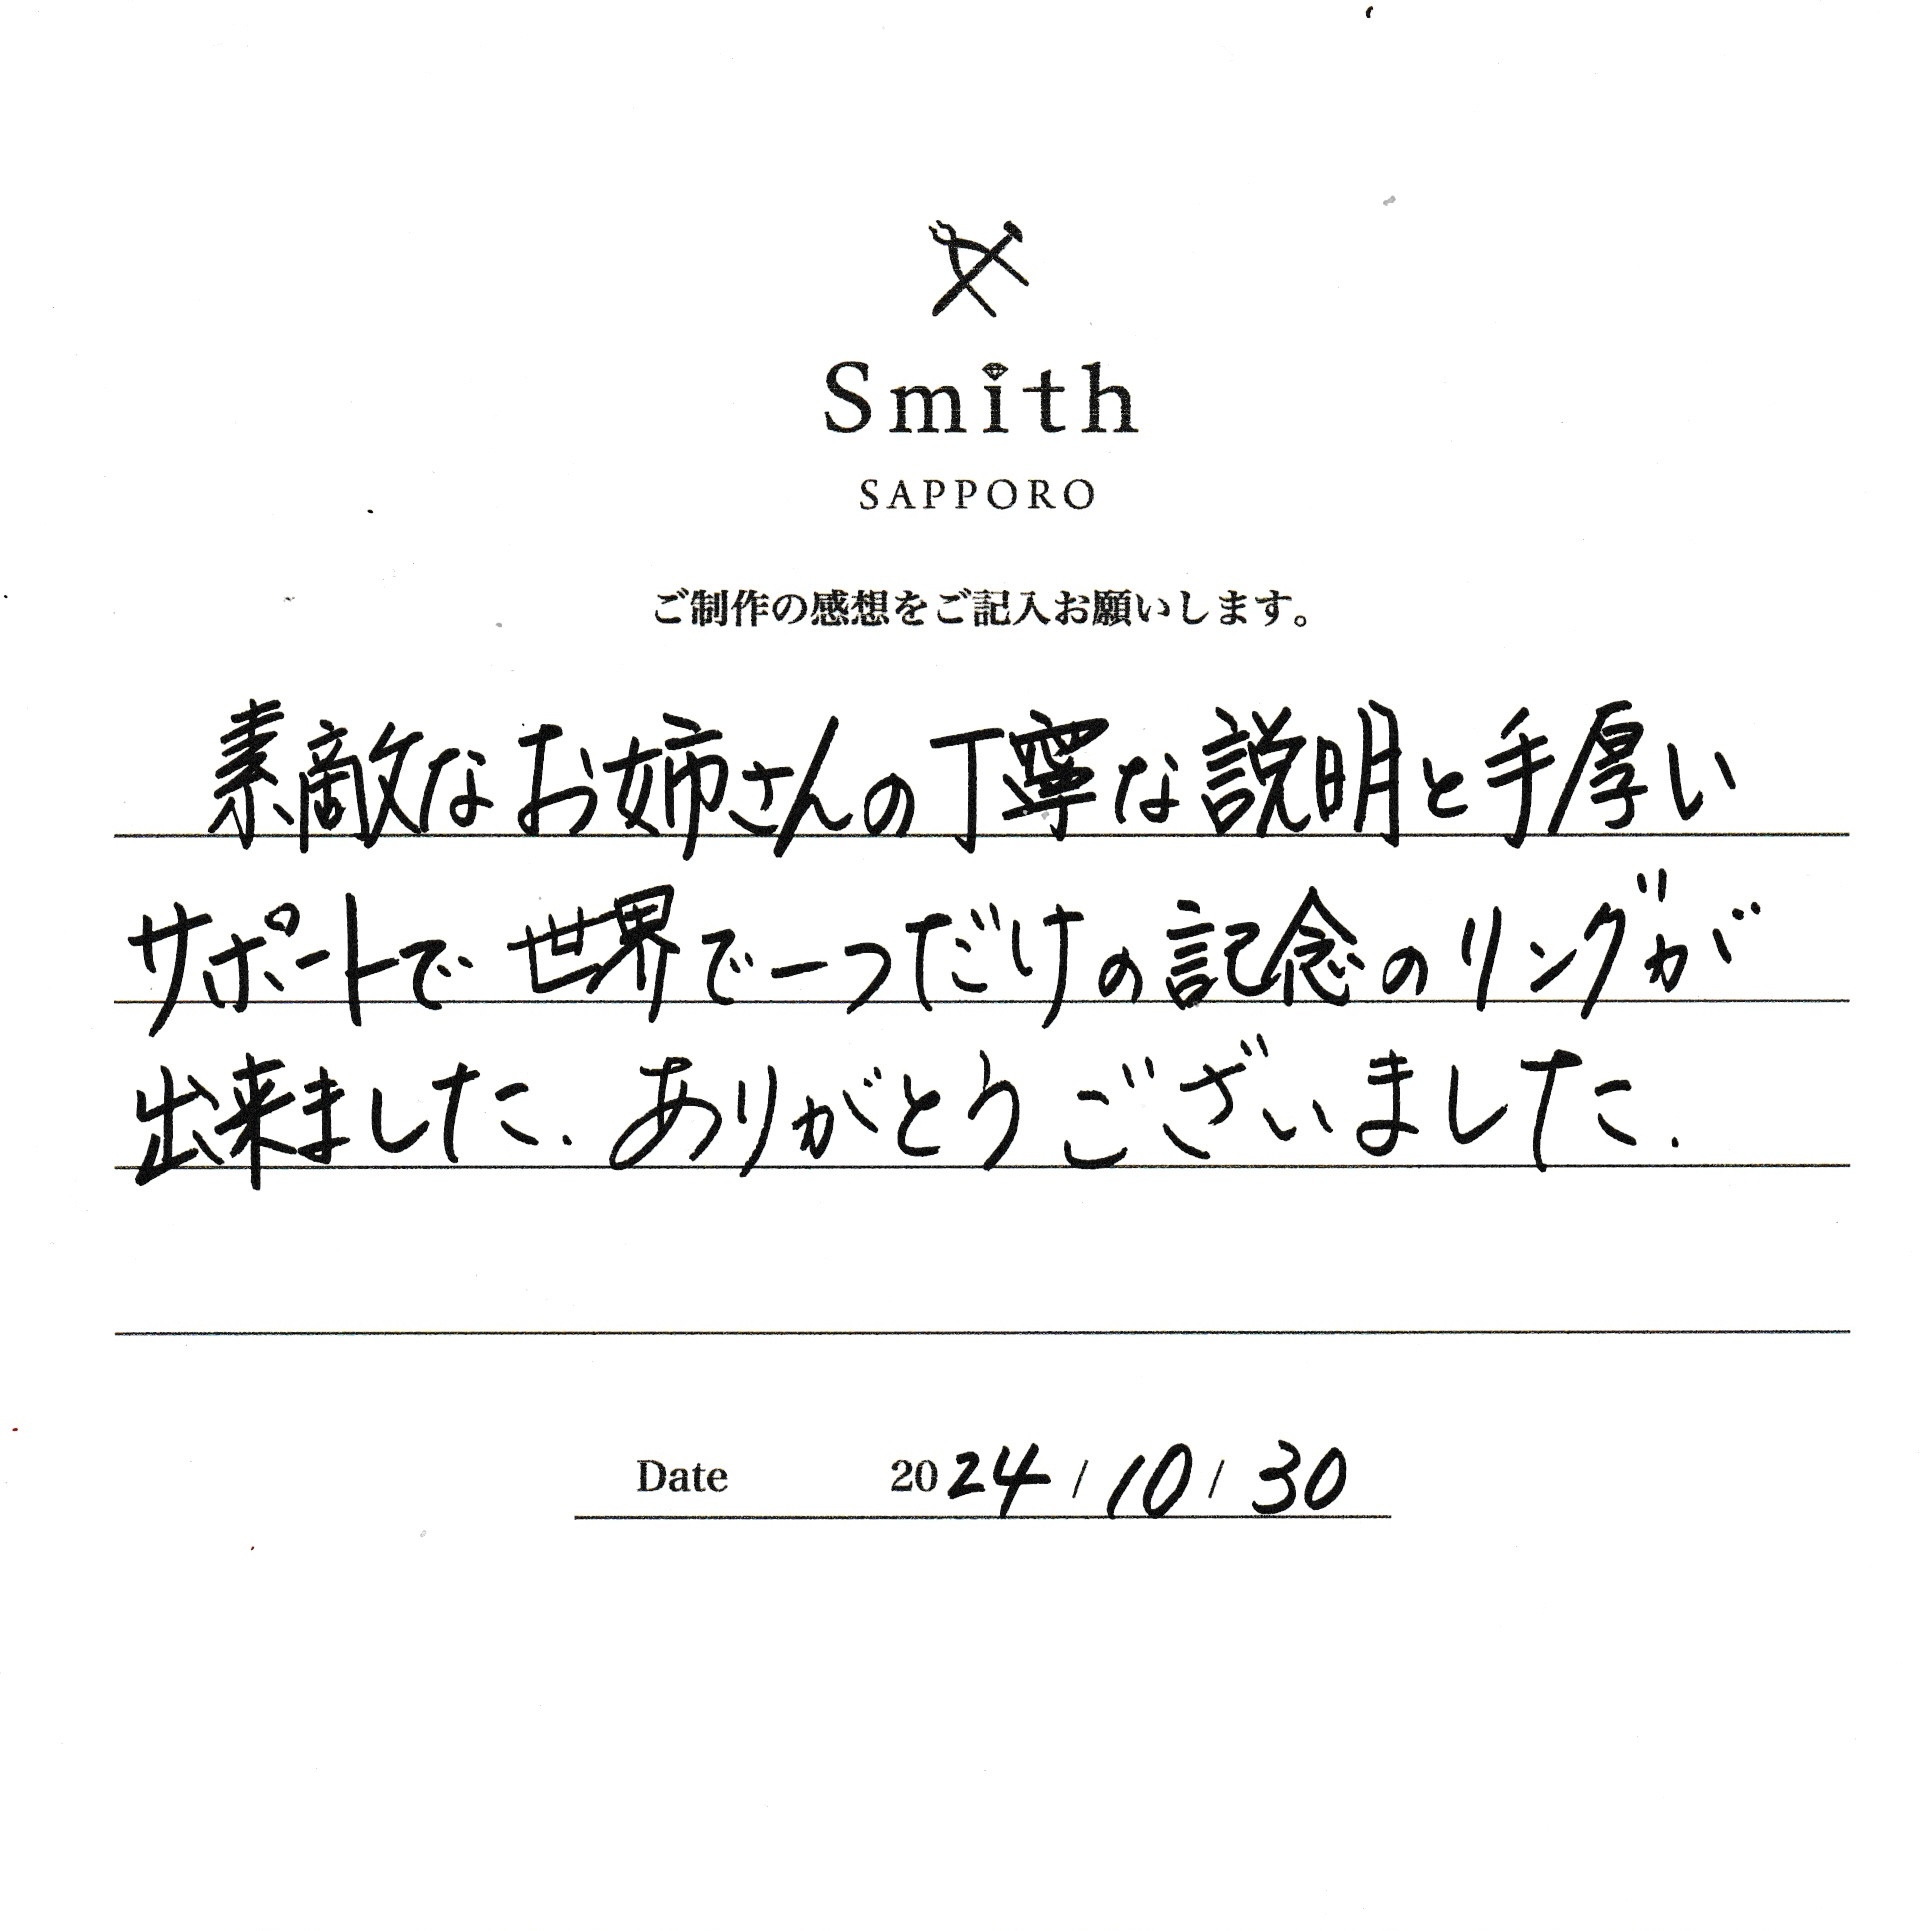 Smith
SAPPORO
ご制作の感想をご記入お願いします。
素敵なお姉さんの丁寧な説明と手厚い
サポートで世界で一つだけの記念のリングが
出来ました.ありがとうございました.
Date 2024/10/30